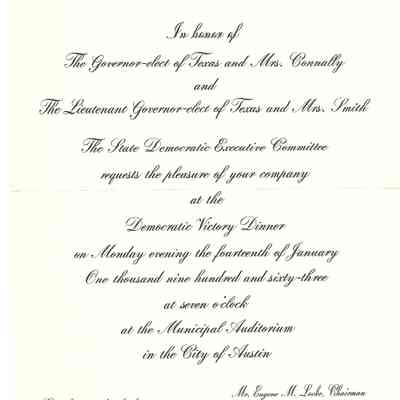 In honor of
The Governor-elect of Texas and Mrs. Connally
and
The Lieutenant Governor-elect of Texas and Mrs. Smith
The State Democratic Executive Committee
requests the pleasure of your company
at the
Democratic Victory Dinner
on Monday evening the fourteenth of January
One thousand nine hundred and sixty-three
at seven o'clock
at the Municipal Auditorium
in the City of Austin
Mr. Eugene M. Locke, Chairman